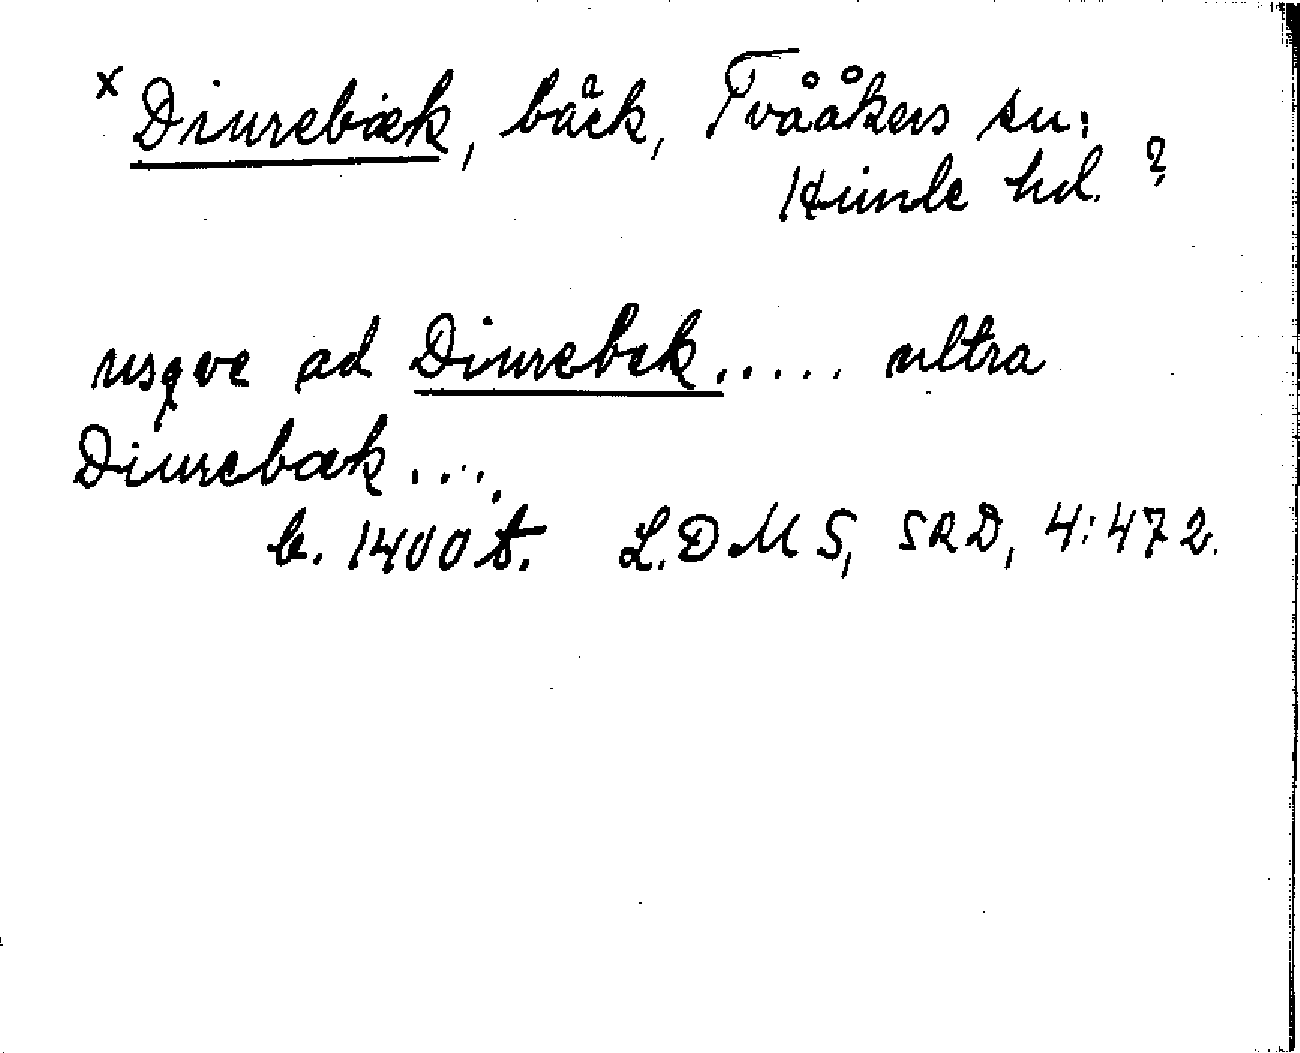 x Diurebæk, bäck, Tvååkers sn:
Himle hd. ?
usqve ad Diurebek ..... ultra
Diurebæk ....
b. 1400 t. L.DMS, SRD, 4:472.